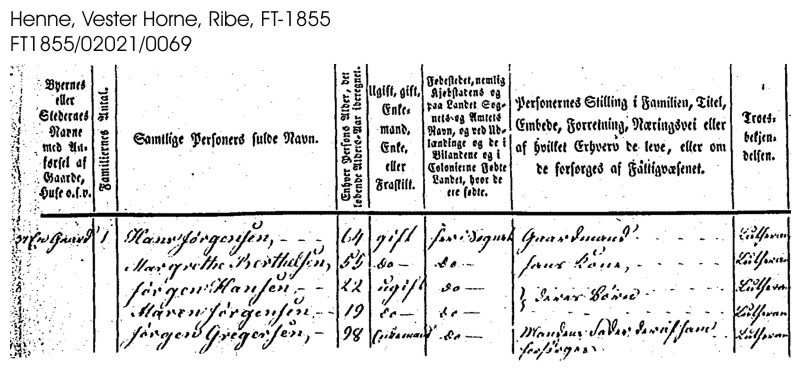 Henne, Vester Horne, Ribe, FT-1855
FT1855/02021/0069
Byernes
eller
Stedernes
Navne
med An-
førsel af
Gaarde,
Huse o.s.v.
Familiernes Antal.
Samtlige Personers fulde Navn.
Enhver Persons Alder, det
løbende Alders-Aar iberegnet.
Ugift, gift,
Enke-
mand,
Enke,
eller
Fraskilt.
Fødestedet, nemlig
Kjøbstadens og
paa Landet Sog-
nets og Amtets
Navn, og ved Ud-
lændinge og de i
Bilandene og i
Colonierne Fødte
Landet, hvor de
ere fødte.
Personernes Stilling i Familien, Titel,
Embede, Forretning, Næringsvei eller
af hvilket Erhverv de leve, eller om
de forsørges af Fattigvæsenet.
Troes-
bekjen-
delsen.
En Gaard 1 Hans Jørgensen, 64 gift her i Sognet Gaardmand Lutheran
Margrethe Berthelsen, 55 do do hans Kone, Lutheran
Jørgen Hansen 22 ugift do } deres Børn Lutheran
Maren Jørgensen 19 do do Lutheran
Jørgen Gregersen, 98 Enkemand do Mandens Fader der af ham Lutheran
forsørges